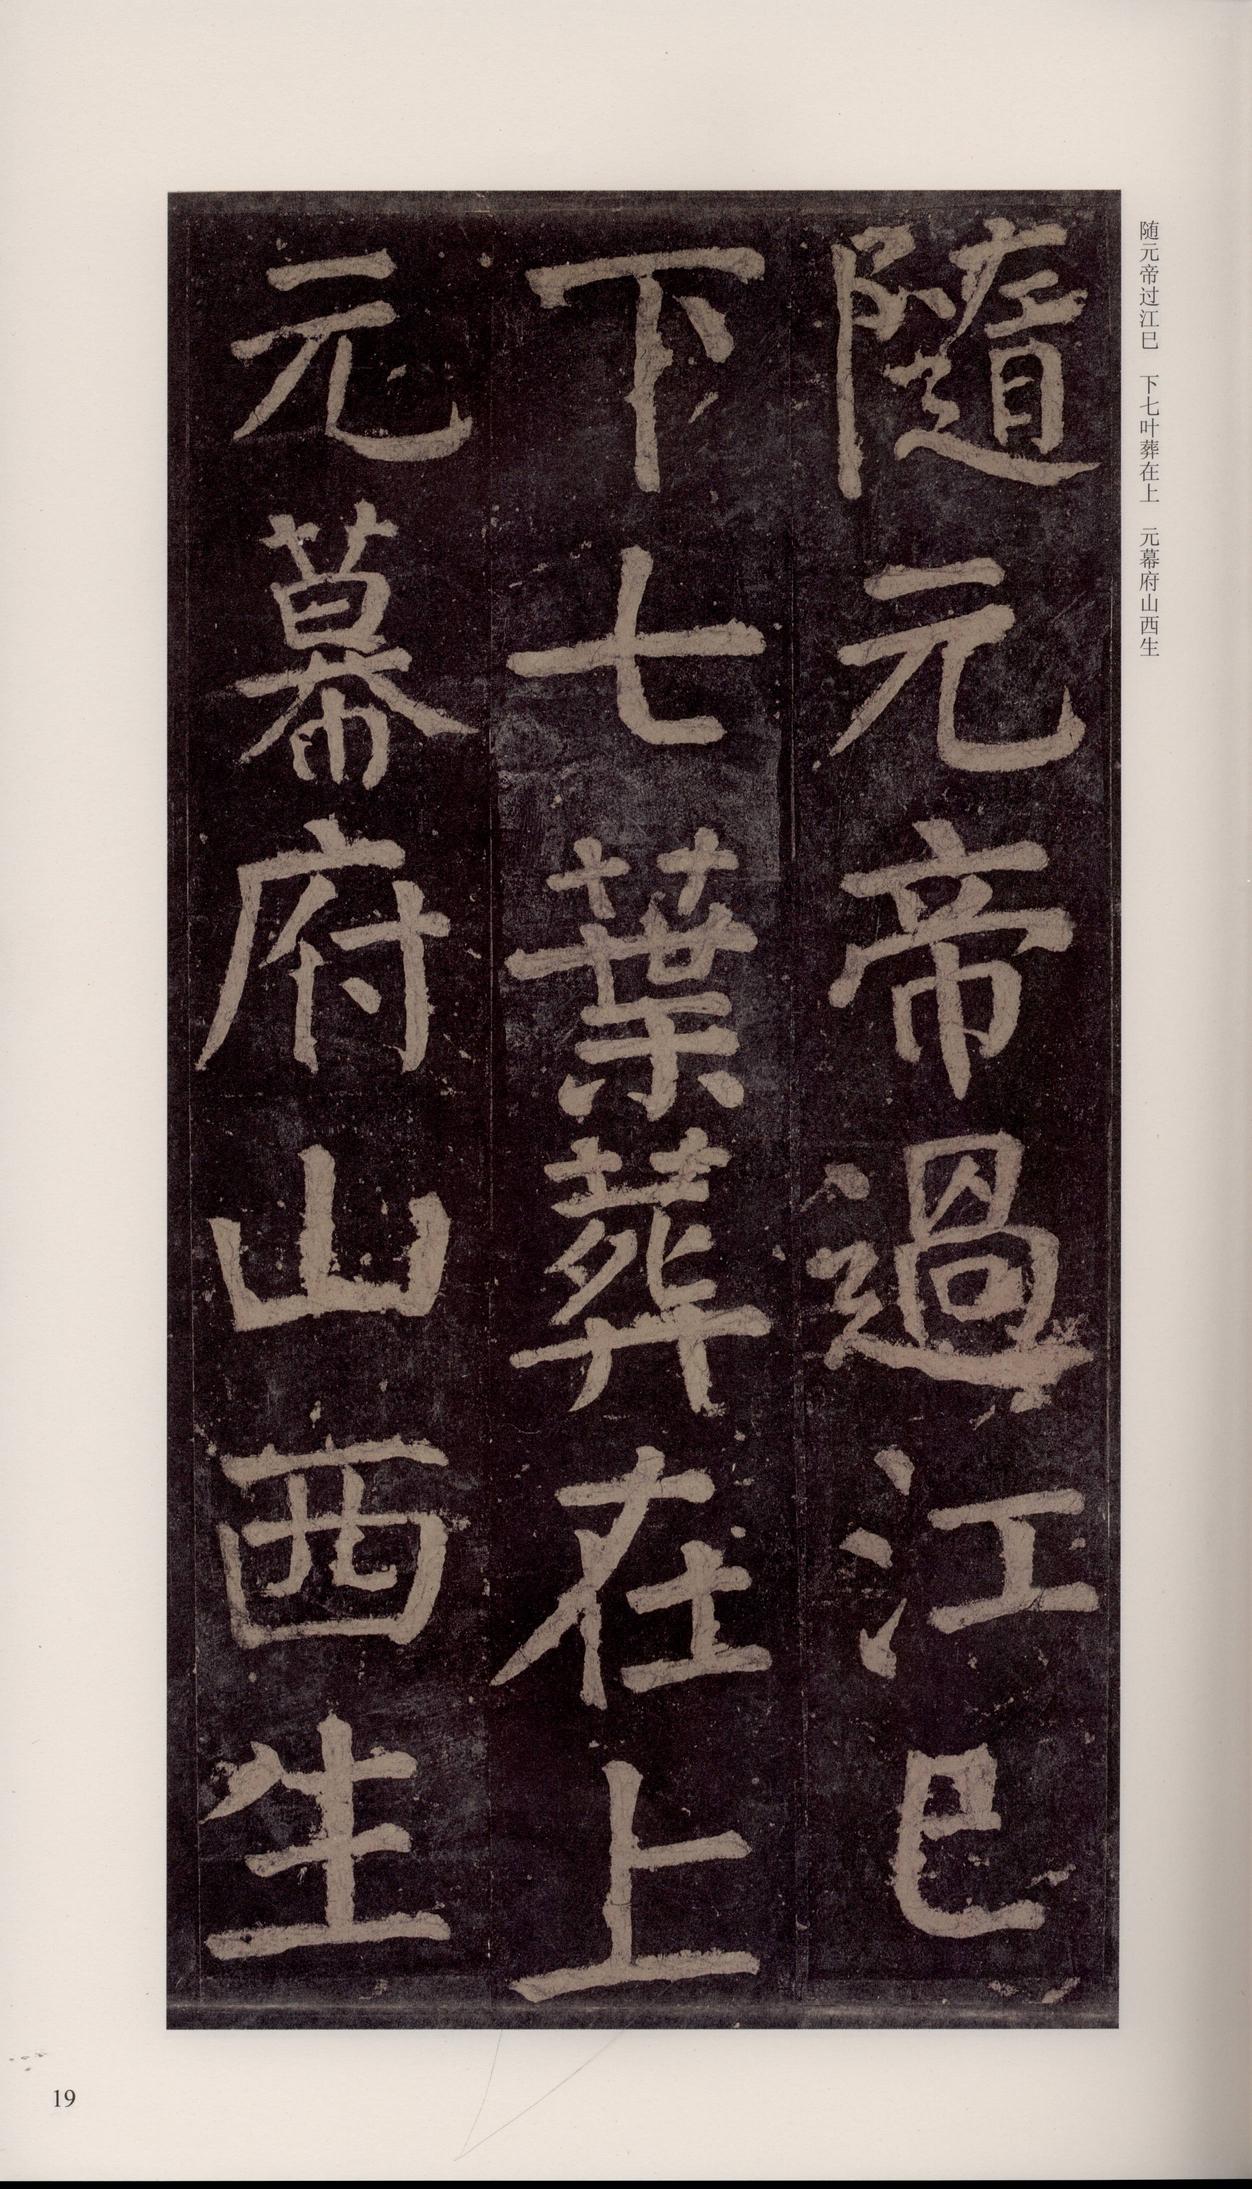 随元帝过江巳　下七叶葬在上　元幕府山西生
隨元帝過江巳
下七葉葬在上
元幕府山西生
19